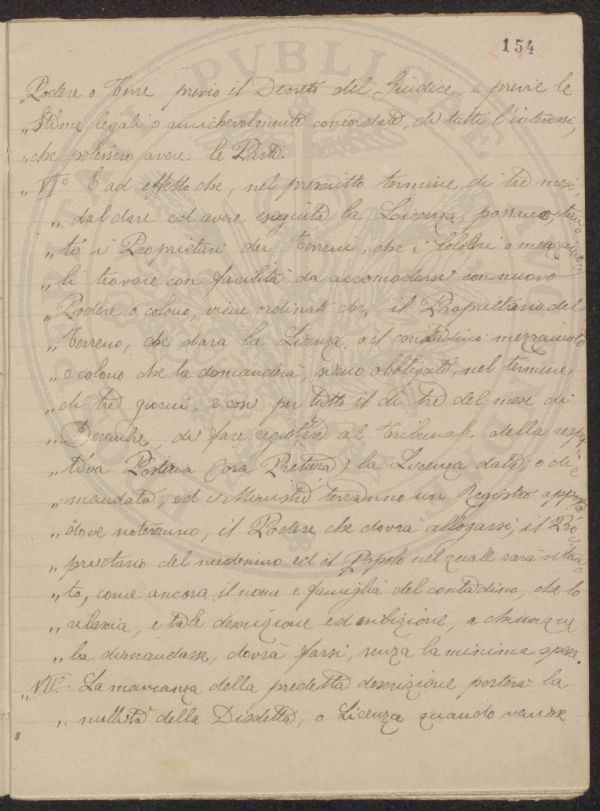 154
„ Podere o Terre, previo il Decreto del Giudice, e previe le
„ Stime legali o amichevolmente concordate, di tutti l'interessi,
„ che potessero avere le Parti.
„ VI° E ad effetto che, nel prescritto termine di tre mesi
„ dal dare ed avere eseguita la Licenza, possano, tan=
„ to i Proprietari dei Terreni, che i Coloni o mezzaiuo=
„ li trovare con facilità da accomodarsi con nuovo
„ Podere o colono, viene ordinato che, il Proprietario del
„ Terreno, che darà la Licenza, o il contadino mezzaiuolo
„ o colono che la domanderà, siano obbligati, nel termine
„ di tre giorni, e così per tutto il dì tre del mese di
„ Decembre, di fare registrare al Tribunale della respet=
„ tiva Potesteria (ora Pretura) la Licenza data, o di=
„ mandata, ed i Ministri terranno un Registro apposito
„ dove noteranno, il Podere che dovrà allogarsi, il Pro=
„ prietario del medesimo ed il Popolo nel quale sarà situa=
„ to, come ancora il nome e famiglia del contadino, che lo
„ rilascia, e tale descrizione ed esibizione, a chiunque
„ la dimandasse, dovrà farsi, senza la minima spesa.
„ VII° La mancanza della predetta descrizione porterà la
„ nullità della Disdetta, o Licenza quando venisse